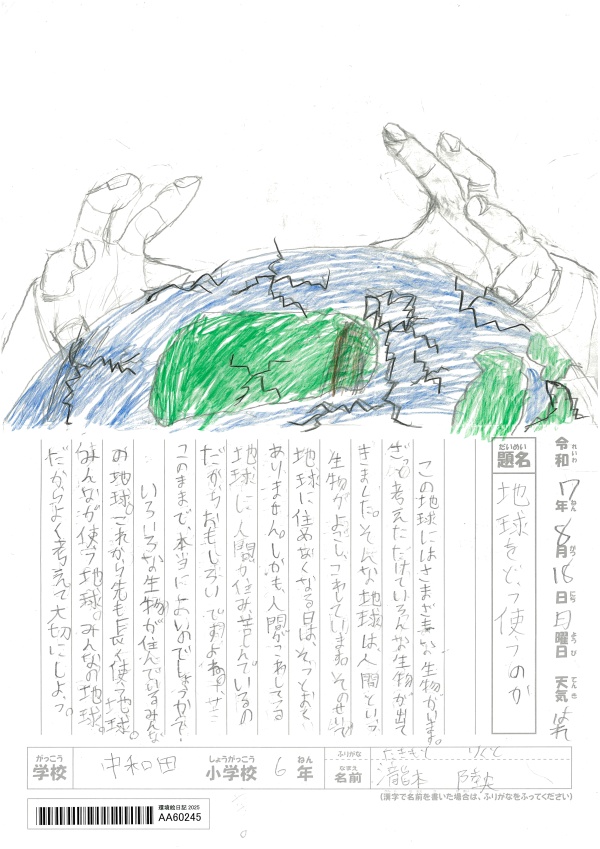 令和 17年 8月 18日 月曜日 天気 はれ
れいわ ねん がつ にち ようび てんき
だいめい
題名 地球をどう使うのか
この地球にはさまざまな生物がいます。
ざっと考えただけでいろんな生物が出て
きました。そんな地球は、人間という
生物がよごし、こわしています。そのせいで
地球に住めなくなる日は、そう
ありません。しかも、人間がこわしている
地球に、人間が住み苦しんでいるの
だからおもしろいですよね。
このままで、本当によいのでしょうか？
いろいろな生物が住んでいるみんな
の地球。これから先も長く使う地球。
みんなが使う地球。みんなの地球。
だからよく考えて大切にしよう。
がっこう しょうがっこう ねん
学校 中和田 小学校 6年
ふりがな たきもと りくと
なまえ
名前 瀧本 陸央
(漢字で名前を書いた場合は、ふりがなをふってください)
環境絵日記2025
AA60245